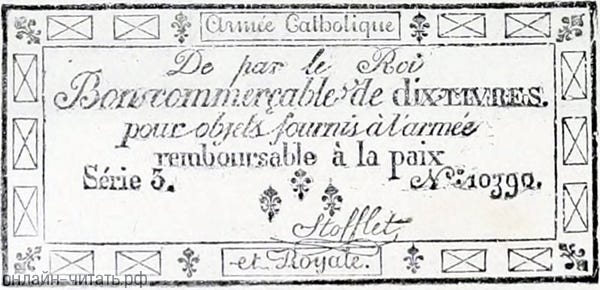 Armée Catholique
De par le Roi
Bon commerçable de dix LIVRES.
pour objets fournis à l'armée
remboursable à la paix
Série 3. N.° 10390.
Stofflet,
et Royale.
онлайн-читать.рф